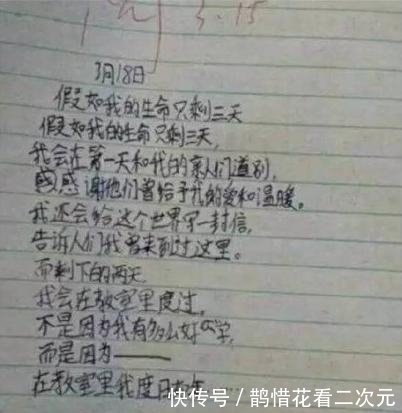 3.15
3月18日
假如我的生命只剩三天
假如我的生命只剩三天,
我会在第一天和我的亲人们道别,
感感谢他们曾给予我的爱和温暖。
我还会给这个世界写一封信,
告诉人们我曾来到过这里。
而剩下的两天
我会在教室里度过,
不是因为我有多么好学,
而是因为——
在教室里我度日如年
快传号/鹊惜花看二次元